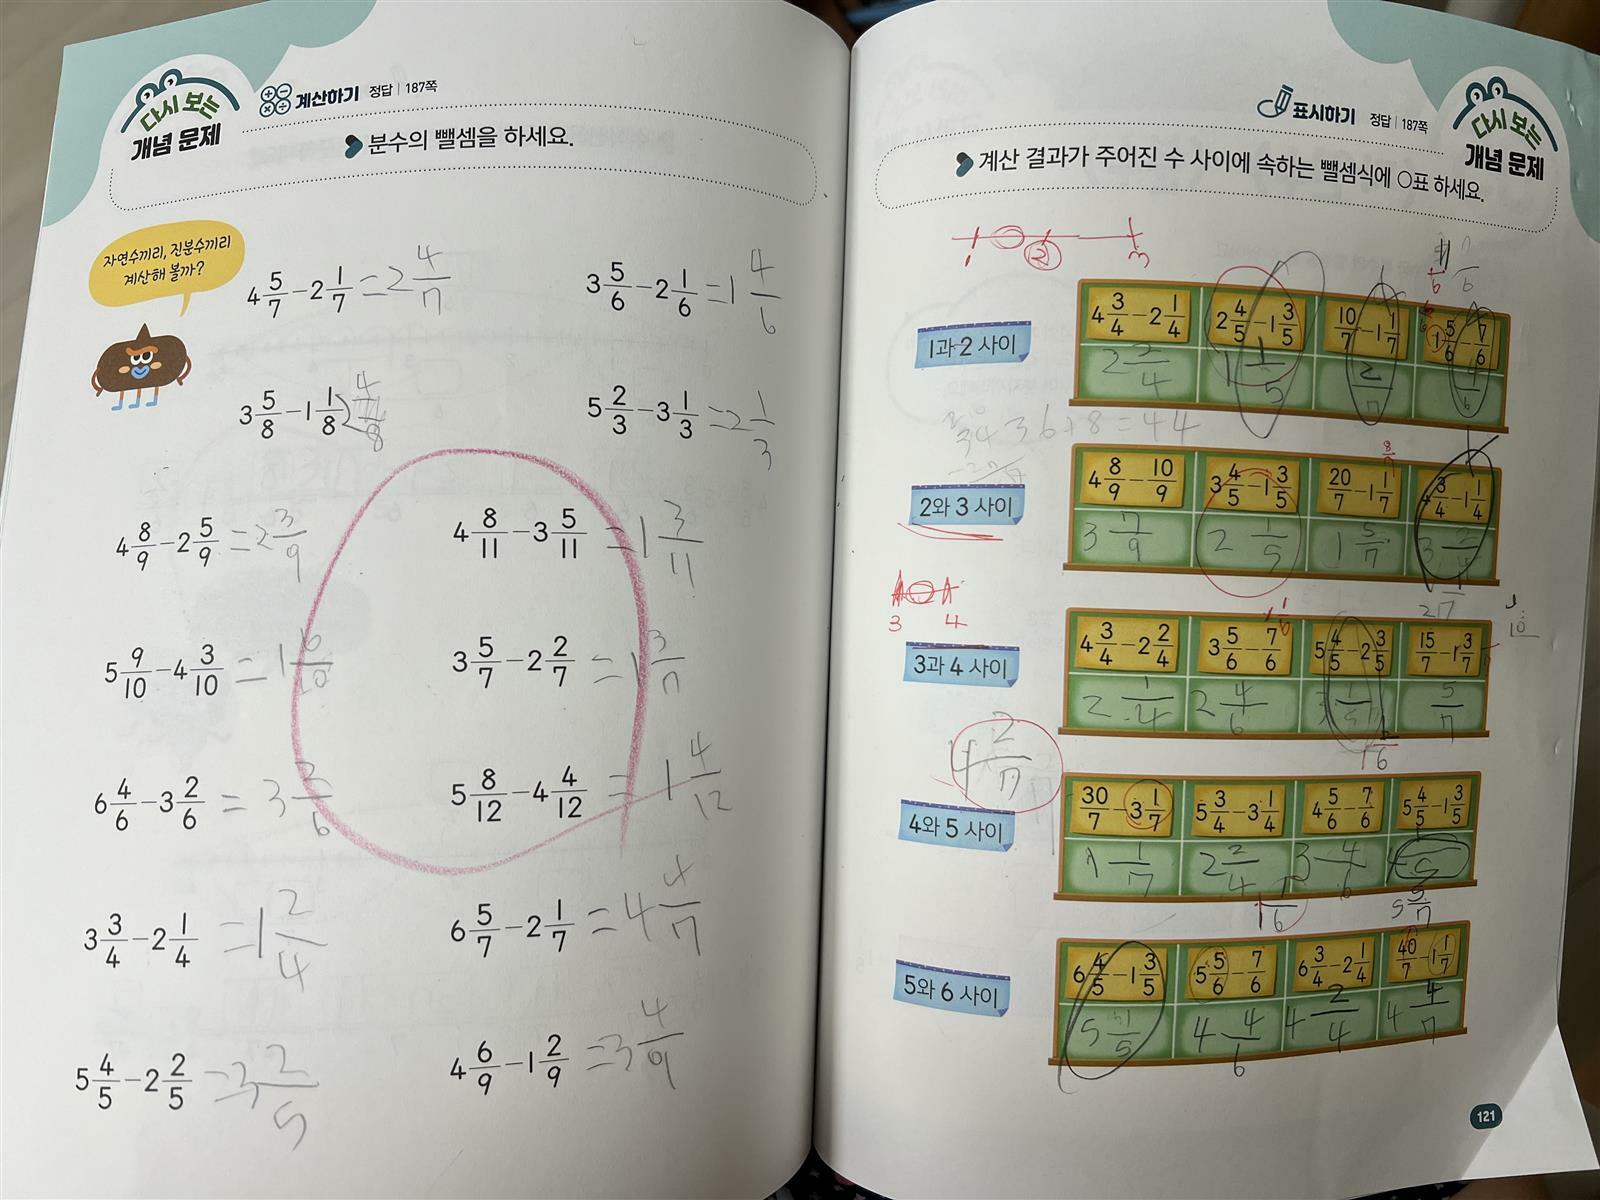 다시 보는
개념 문제
계산하기 정답 | 187쪽
분수의 뺄셈을 하세요.
자연수끼리, 진분수끼리
계산해 볼까?
4 5/7 - 2 1/7 = 2 4/7
3 5/6 - 2 1/6 = 1 4/6
3 5/8 - 1 1/8 2 4/8
5 2/3 - 3 1/3 = 2 1/3
4 8/9 - 2 5/9 = 2 3/9
4 8/11 - 3 5/11 = 1 3/11
5 9/10 - 4 3/10 = 1 6/10
3 5/7 - 2 2/7 = 1 3/7
6 4/6 - 3 2/6 = 3 2/6
5 8/12 - 4 4/12 = 1 4/12
3 3/4 - 2 1/4 = 1 2/4
6 5/7 - 2 1/7 = 4 4/7
5 4/5 - 2 2/5 = 3 2/5
4 6/9 - 1 2/9 = 3 4/9
표시하기 정답 | 187쪽
다시 보는
개념 문제
계산 결과가 주어진 수 사이에 속하는 뺄셈식에 ○표 하세요.
1 2 3
1과 2 사이
4 3/4 - 2 1/4 2 4/5 - 1 3/5 10/7 - 1 1/7 1 5/6 - 7/6
2 2/4 1 1/5 2/7 4/6
36+8=44
2와 3 사이
4 8/9 - 10/9 3 4/5 - 1 3/5 20/7 - 1 1/7 4 3/4 - 1 1/4
3 7/9 2 1/5 1 5/7 3 2/4
3 4
3과 4 사이
4 3/4 - 2 2/4 3 5/6 - 7/6 5 4/5 - 2 3/5 15/7 - 1 3/7
2 1/4 2 4/6 3 1/5 5/7
4 2/7
4와 5 사이
30/7 - 3 1/7 5 3/4 - 3 1/4 4 5/6 - 7/6 5 4/5 - 1 3/5
1 1/7 2 2/4 3 4/6
1 1/6 5 5/7
5와 6 사이
6 4/5 - 1 3/5 5 5/6 - 7/6 6 3/4 - 2 1/4 40/7 - 1 1/7
5 1/5 4 4/6 4 2/4 4 4/7
121